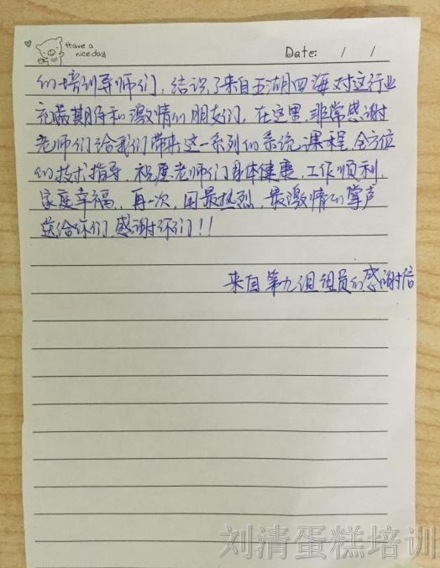 Have a
nice day
Date: / /
们培训导师们，结识了来自五湖四海对这行业
充满期待和激情的朋友们，在这里，非常感谢
老师们给我们带来这一系列的系统课程，全方位
的技术指导，祝愿老师们身体健康，工作顺利，
家庭幸福，再一次，用最热烈，最激情的掌声
送给你们，感谢你们！！
来自第九组组员的感谢信
刘清蛋糕培训